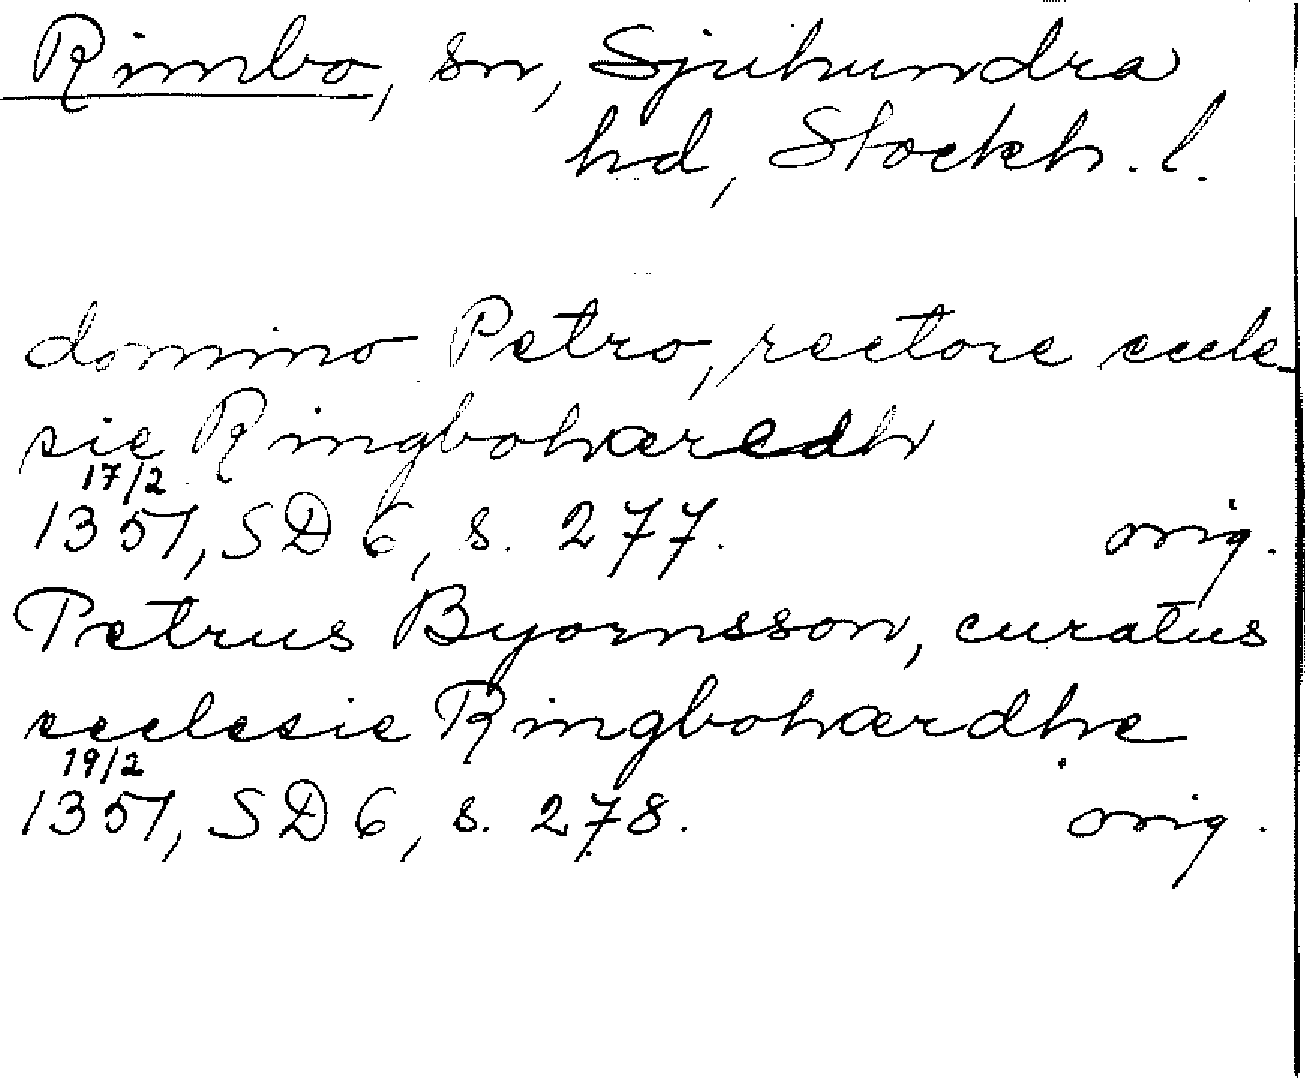 Rimbo, sn, Sjuhundra
hd, Stockh. l.
domino Petro, rectore eccle-
sie Ringbohæredh
17/2
1351, SD 6, s. 277. orig.
Petrus Byornsson, curatus
ecclesie Ringbohærdhe
19/2
1351, SD 6, s. 278. orig.